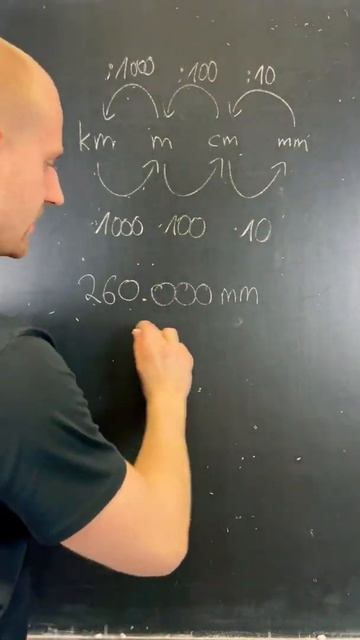 :1000 :100 :10
km m cm mm
·1000 ·100 ·10
260.000 mm